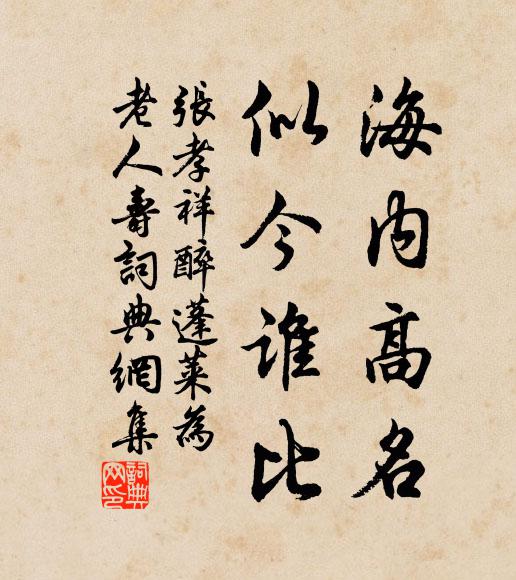 海内高名
似今誰比
張孝祥醉蓬萊為
老人壽詞典網集
詞典
网印